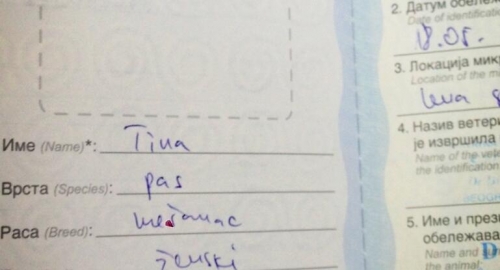 Име (Name)*: Tina
Врста (Species): pas
Раса (Breed): mešanac
ženski
2. Датум обележ
Date of identificatio
18.05.
3. Локација мик
Location of the m
leva
4. Назив ветери
је извршила
Name of the vete
the identification
5. Име и прези
обележава
Name and
the animal: